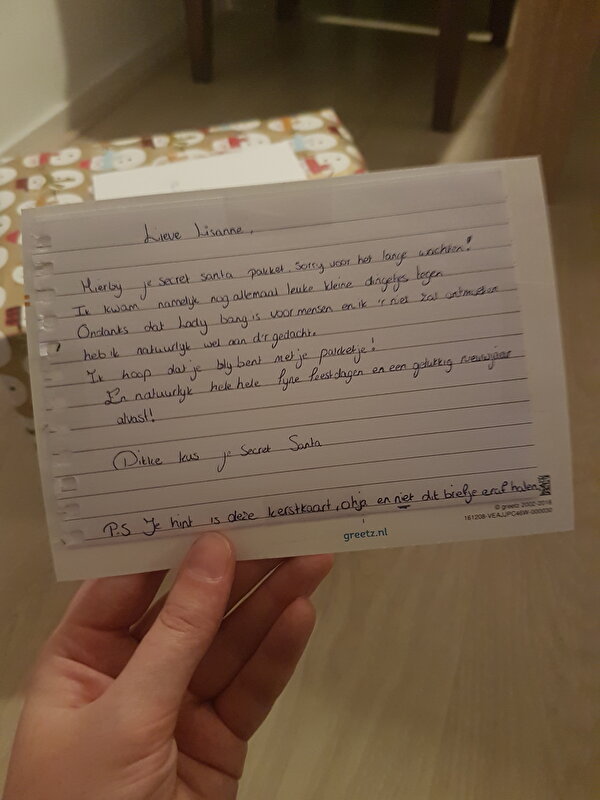 Lieve Lisanne,
Hierby je secret santa pakket. Sorry voor het lange wachten!
Ik kwam namelyk nog allemaal leuke kleine dingetjes tegen
Ondanks dat Lady bang is voor mensen en ik 'r niet zal ontmoeten
heb ik natuurlyk wel aan d'r gedacht.
Ik hoop dat je bly bent met je pakketje!
En natuurlyk hele hele fyne feestdagen en een gelukkig nieuwjaar
alvast!
Dikke kus je Secret Santa
P.S Je hint is deze kerstkaart, ohja en niet dit briefje eraf halen
© greetz 2002-2016
161208-VEAJJPC46W-000030
greetz.nl